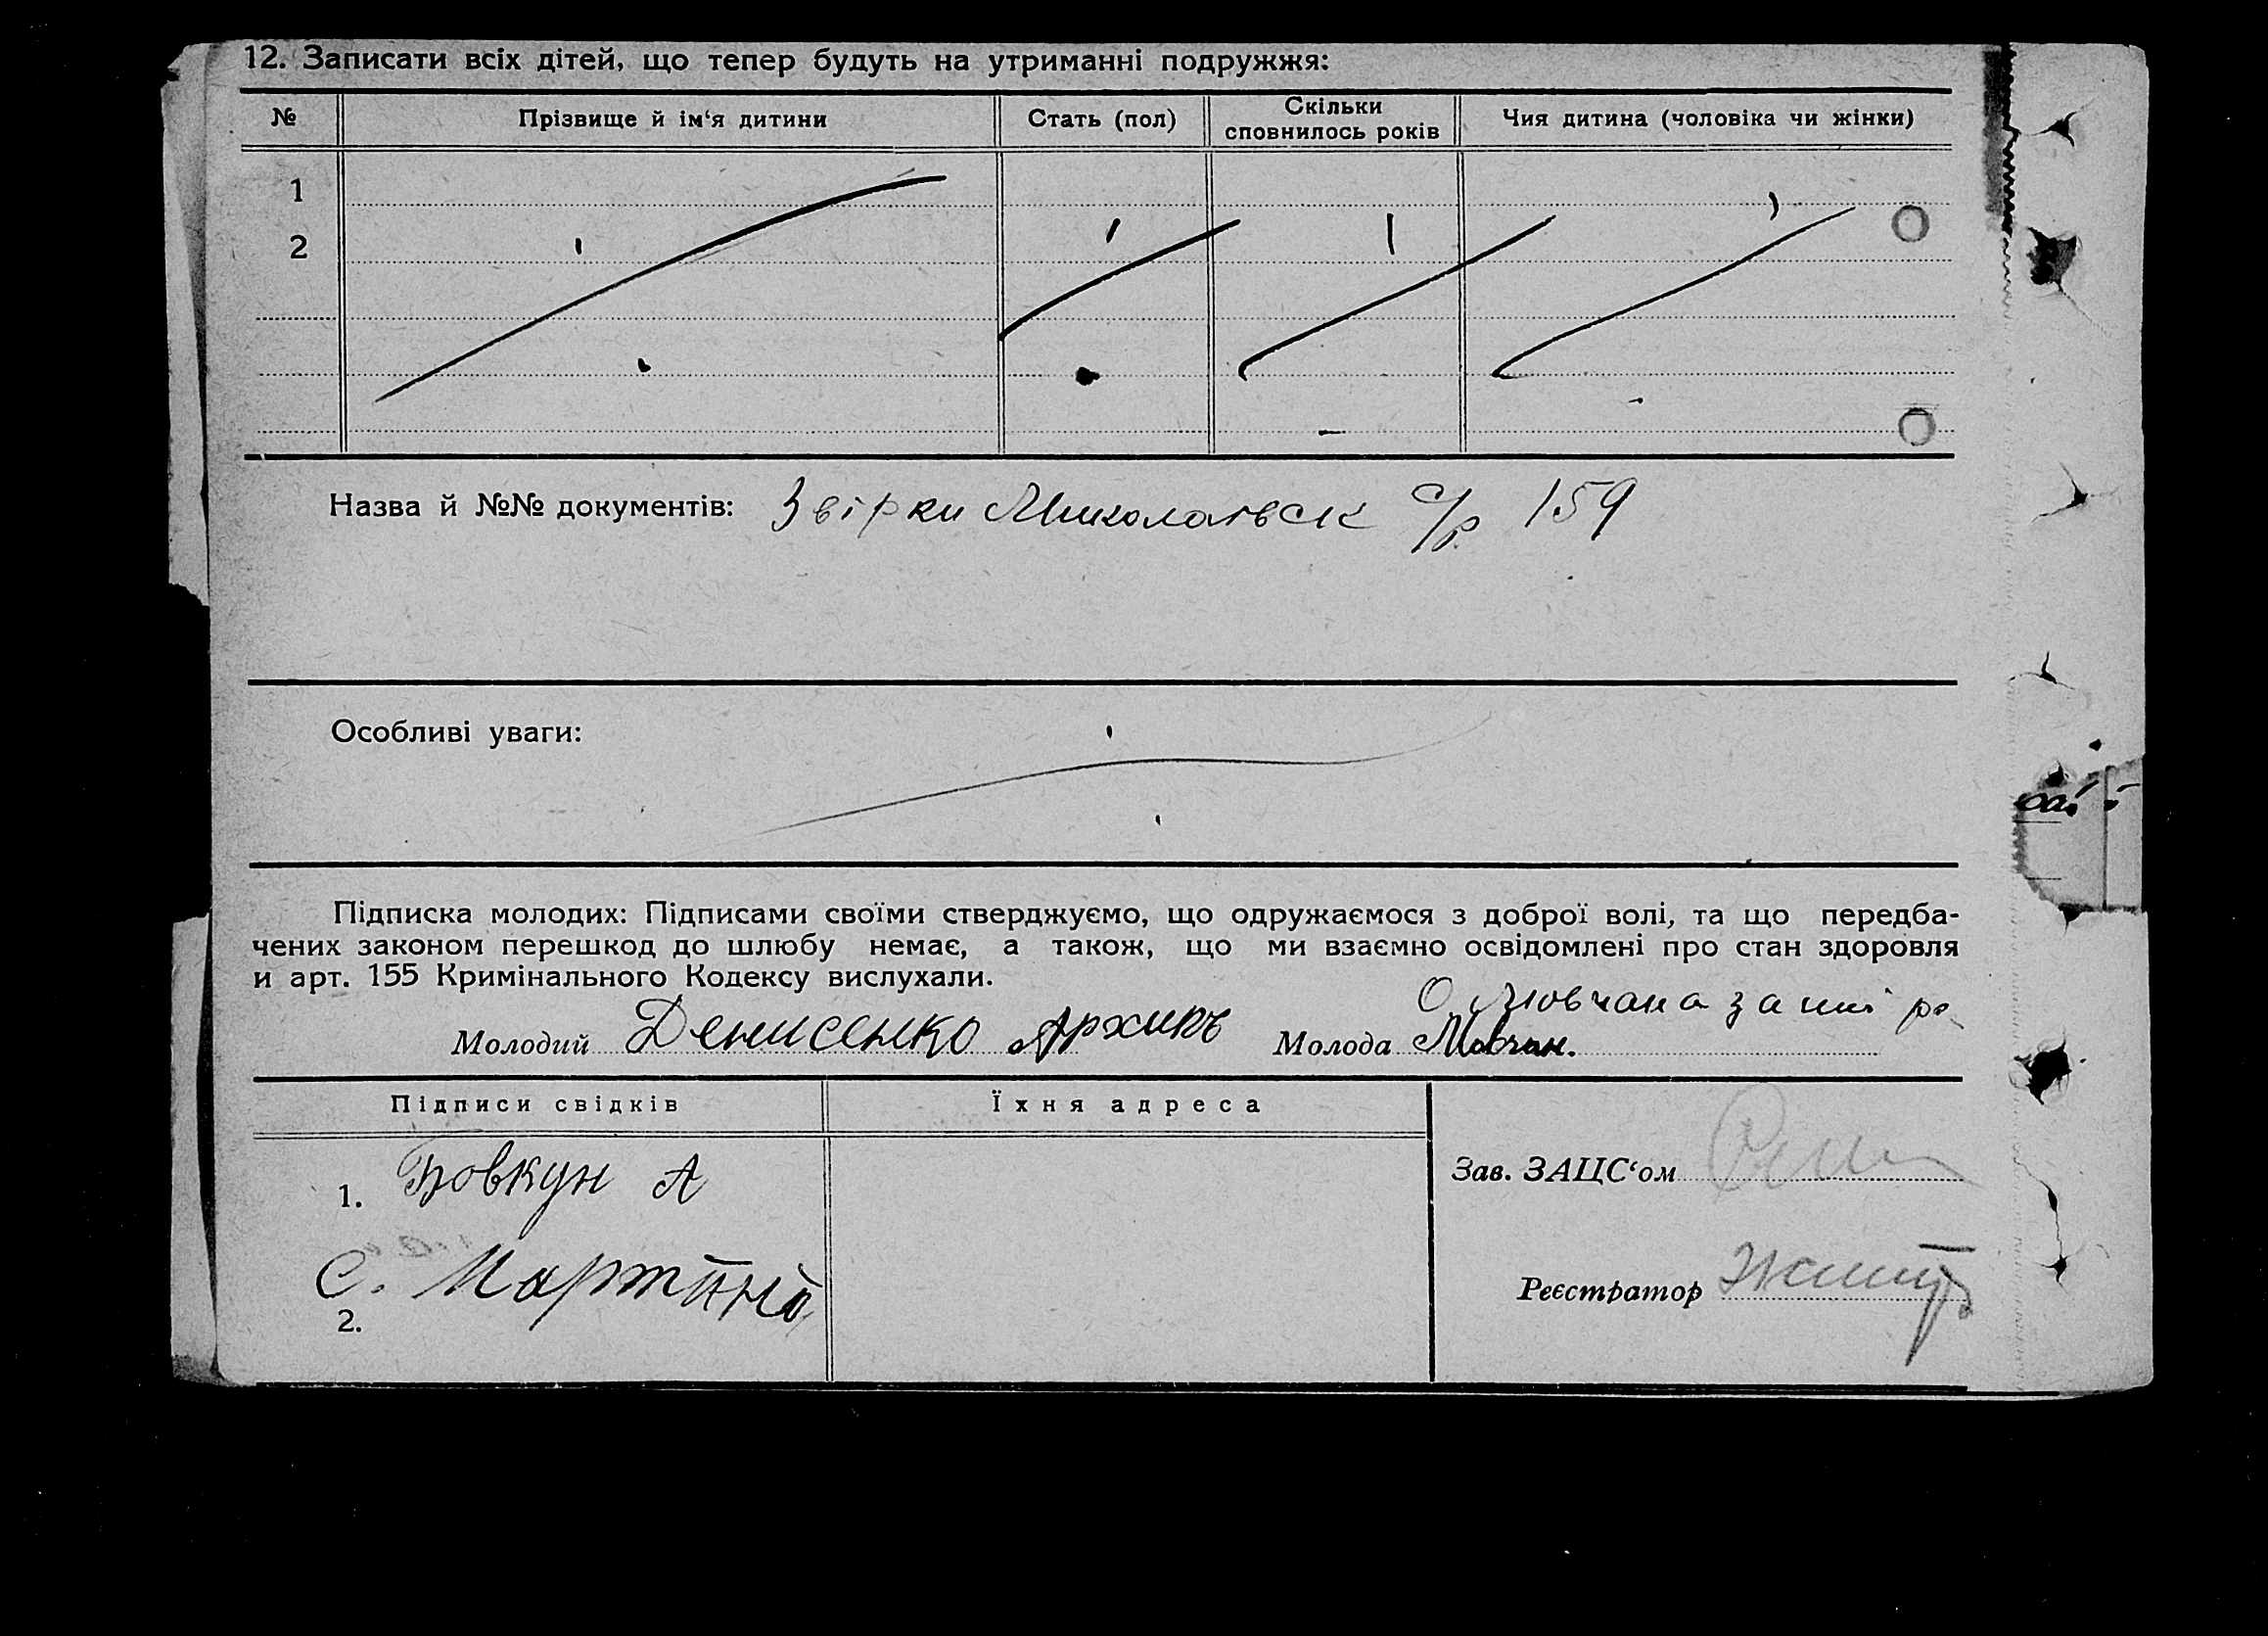 12. Записати всіх дітей, що тепер будуть на утриманні подружжя:
№ Прізвище й ім‘я дитини Стать (пол) Скільки сповнилось років Чия дитина (чоловіка чи жінки)
1
2
Назва й №№ документів: Звірки Миколаївськ с/р. 159
Особливі уваги:
Підписка молодих: Підписами своїми стверджуємо, що одружаємося з доброї волі, та що передба-
чених законом перешкод до шлюбу немає, а також, що ми взаємно освідомлені про стан здоровля
и арт. 155 Кримінального Кодексу вислухали.
Молодий Денисенко Архипъ Молода Мовчан.
Підписи свідків Їхня адреса
1. Бовкун А
Зав. ЗАЦС‘ом
С. Мартин
2.
Реєстратор